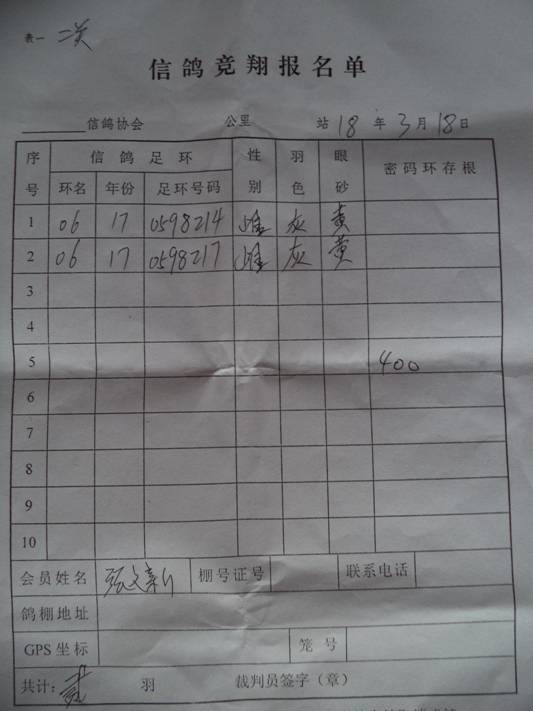 表一 二关
信鸽竞翔报名单
______信鸽协会 公里 站 18 年 3 月 18 日
序号 信鸽足环 性别 羽色 眼砂 密码环存根
环名 年份 足环号码
1 06 17 0598214 雌 灰 黄
2 06 17 0598217 雌 灰 黄
3
4
5 400
6
7
8
9
10
会员姓名 张文新 棚号证号 联系电话
鸽棚地址
GPS坐标 笼号
共计： 羽 裁判员签字（章）